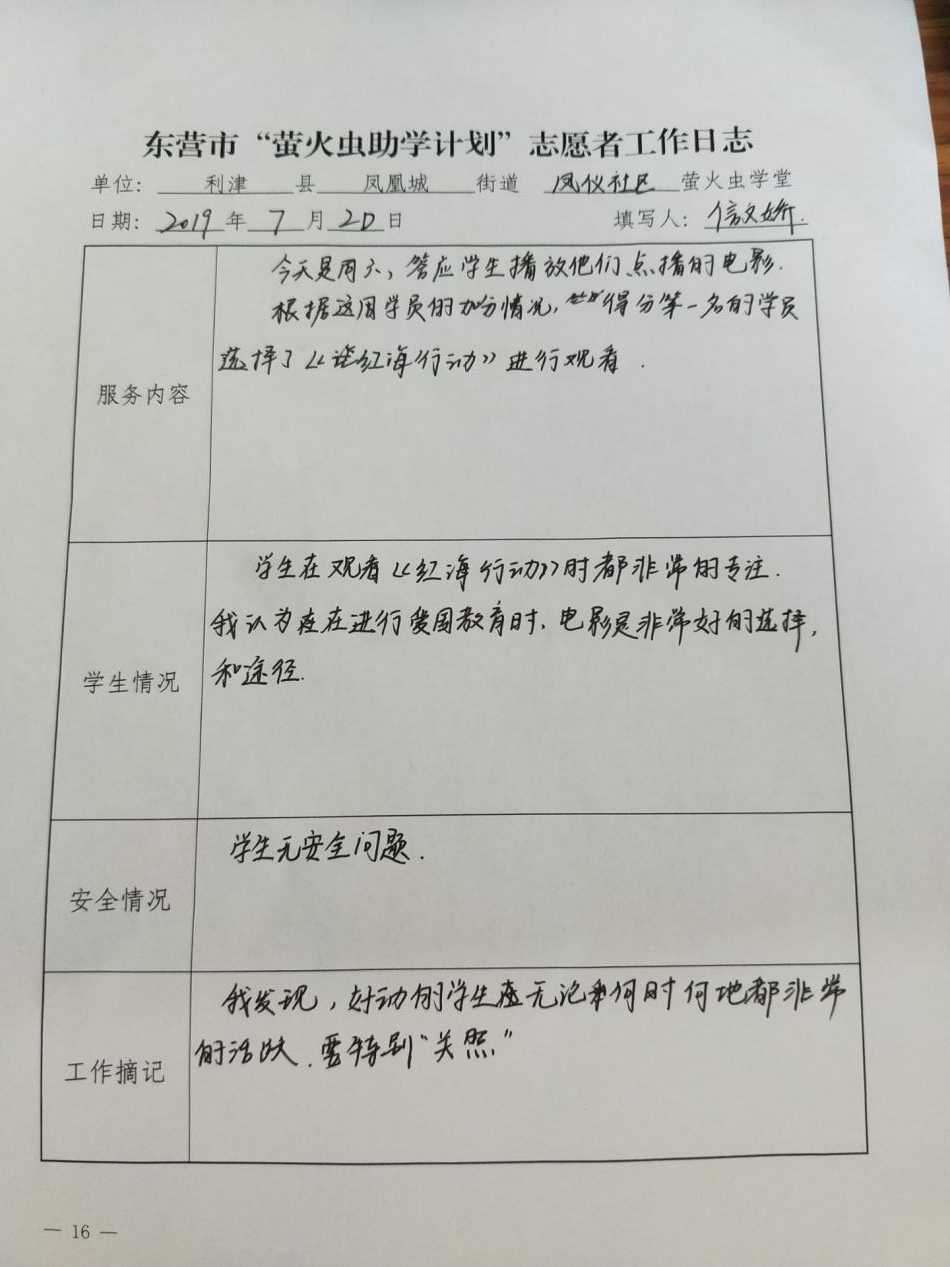 东营市“萤火虫助学计划”志愿者工作日志
单位: 利津 县 凤凰城 街道 凤仪社区 萤火虫学堂
日期: 2019 年 7 月 20 日 填写人: 信文娇.
服务内容
今天是周六, 答应学生播放他们点播的电影.
根据这周学员的加分情况, 得分第一名的学员
选择了《红海行动》进行观看.
学生情况
学生在观看《红海行动》时都非常的专注.
我认为在进行爱国教育时, 电影是非常好的选择,
和途径.
安全情况
学生无安全问题.
工作摘记
我发现, 好动的学生无论何时何地都非常
的活跃. 需特别“关照”
— 16 —